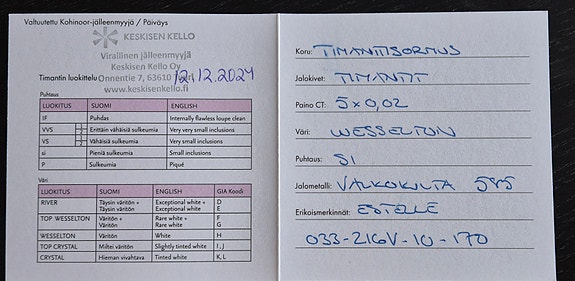 Valtuutettu Kohinoor-jälleenmyyjä / Päiväys
KESKISEN KELLO
Virallinen jälleenmyyjä
Keskisen Kello Oy
Timantin luokittelu
Onnentie 7, 63610
12.12.2024
www.keskisenkello.fi
Puhtaus
LUOKITUS SUOMI ENGLISH
IF Puhdas Internally flawless loupe clean
VVS Erittäin vähäisiä sulkeumia Very very small inclusions
VS Vähäisiä sulkeumia Very small inclusions
si Pieniä sulkeumia Small inclusions
P Sulkeumia Piqué
Väri
LUOKITUS SUOMI ENGLISH GIA Koodi
RIVER Täysin väritön + Exceptional white + D
Täysin väritön Exceptional white E
TOP WESSELTON Väritön + Rare white + F
Väritön Rare white G
WESSELTON Väritön White H
TOP CRYSTAL Miltei väritön Slightly tinted white I, J
CRYSTAL Hieman vivahtava Tinted white K, L
Koru: TIMANTTISORMUS
Jalokivet: TIMANTIT
Paino CT: 5x0,02
Väri: WESSELTON
Puhtaus: SI
Jalometalli: VALKOKULTA 585
Erikoismerkinnät: ESTELLE
033-216V-10-170